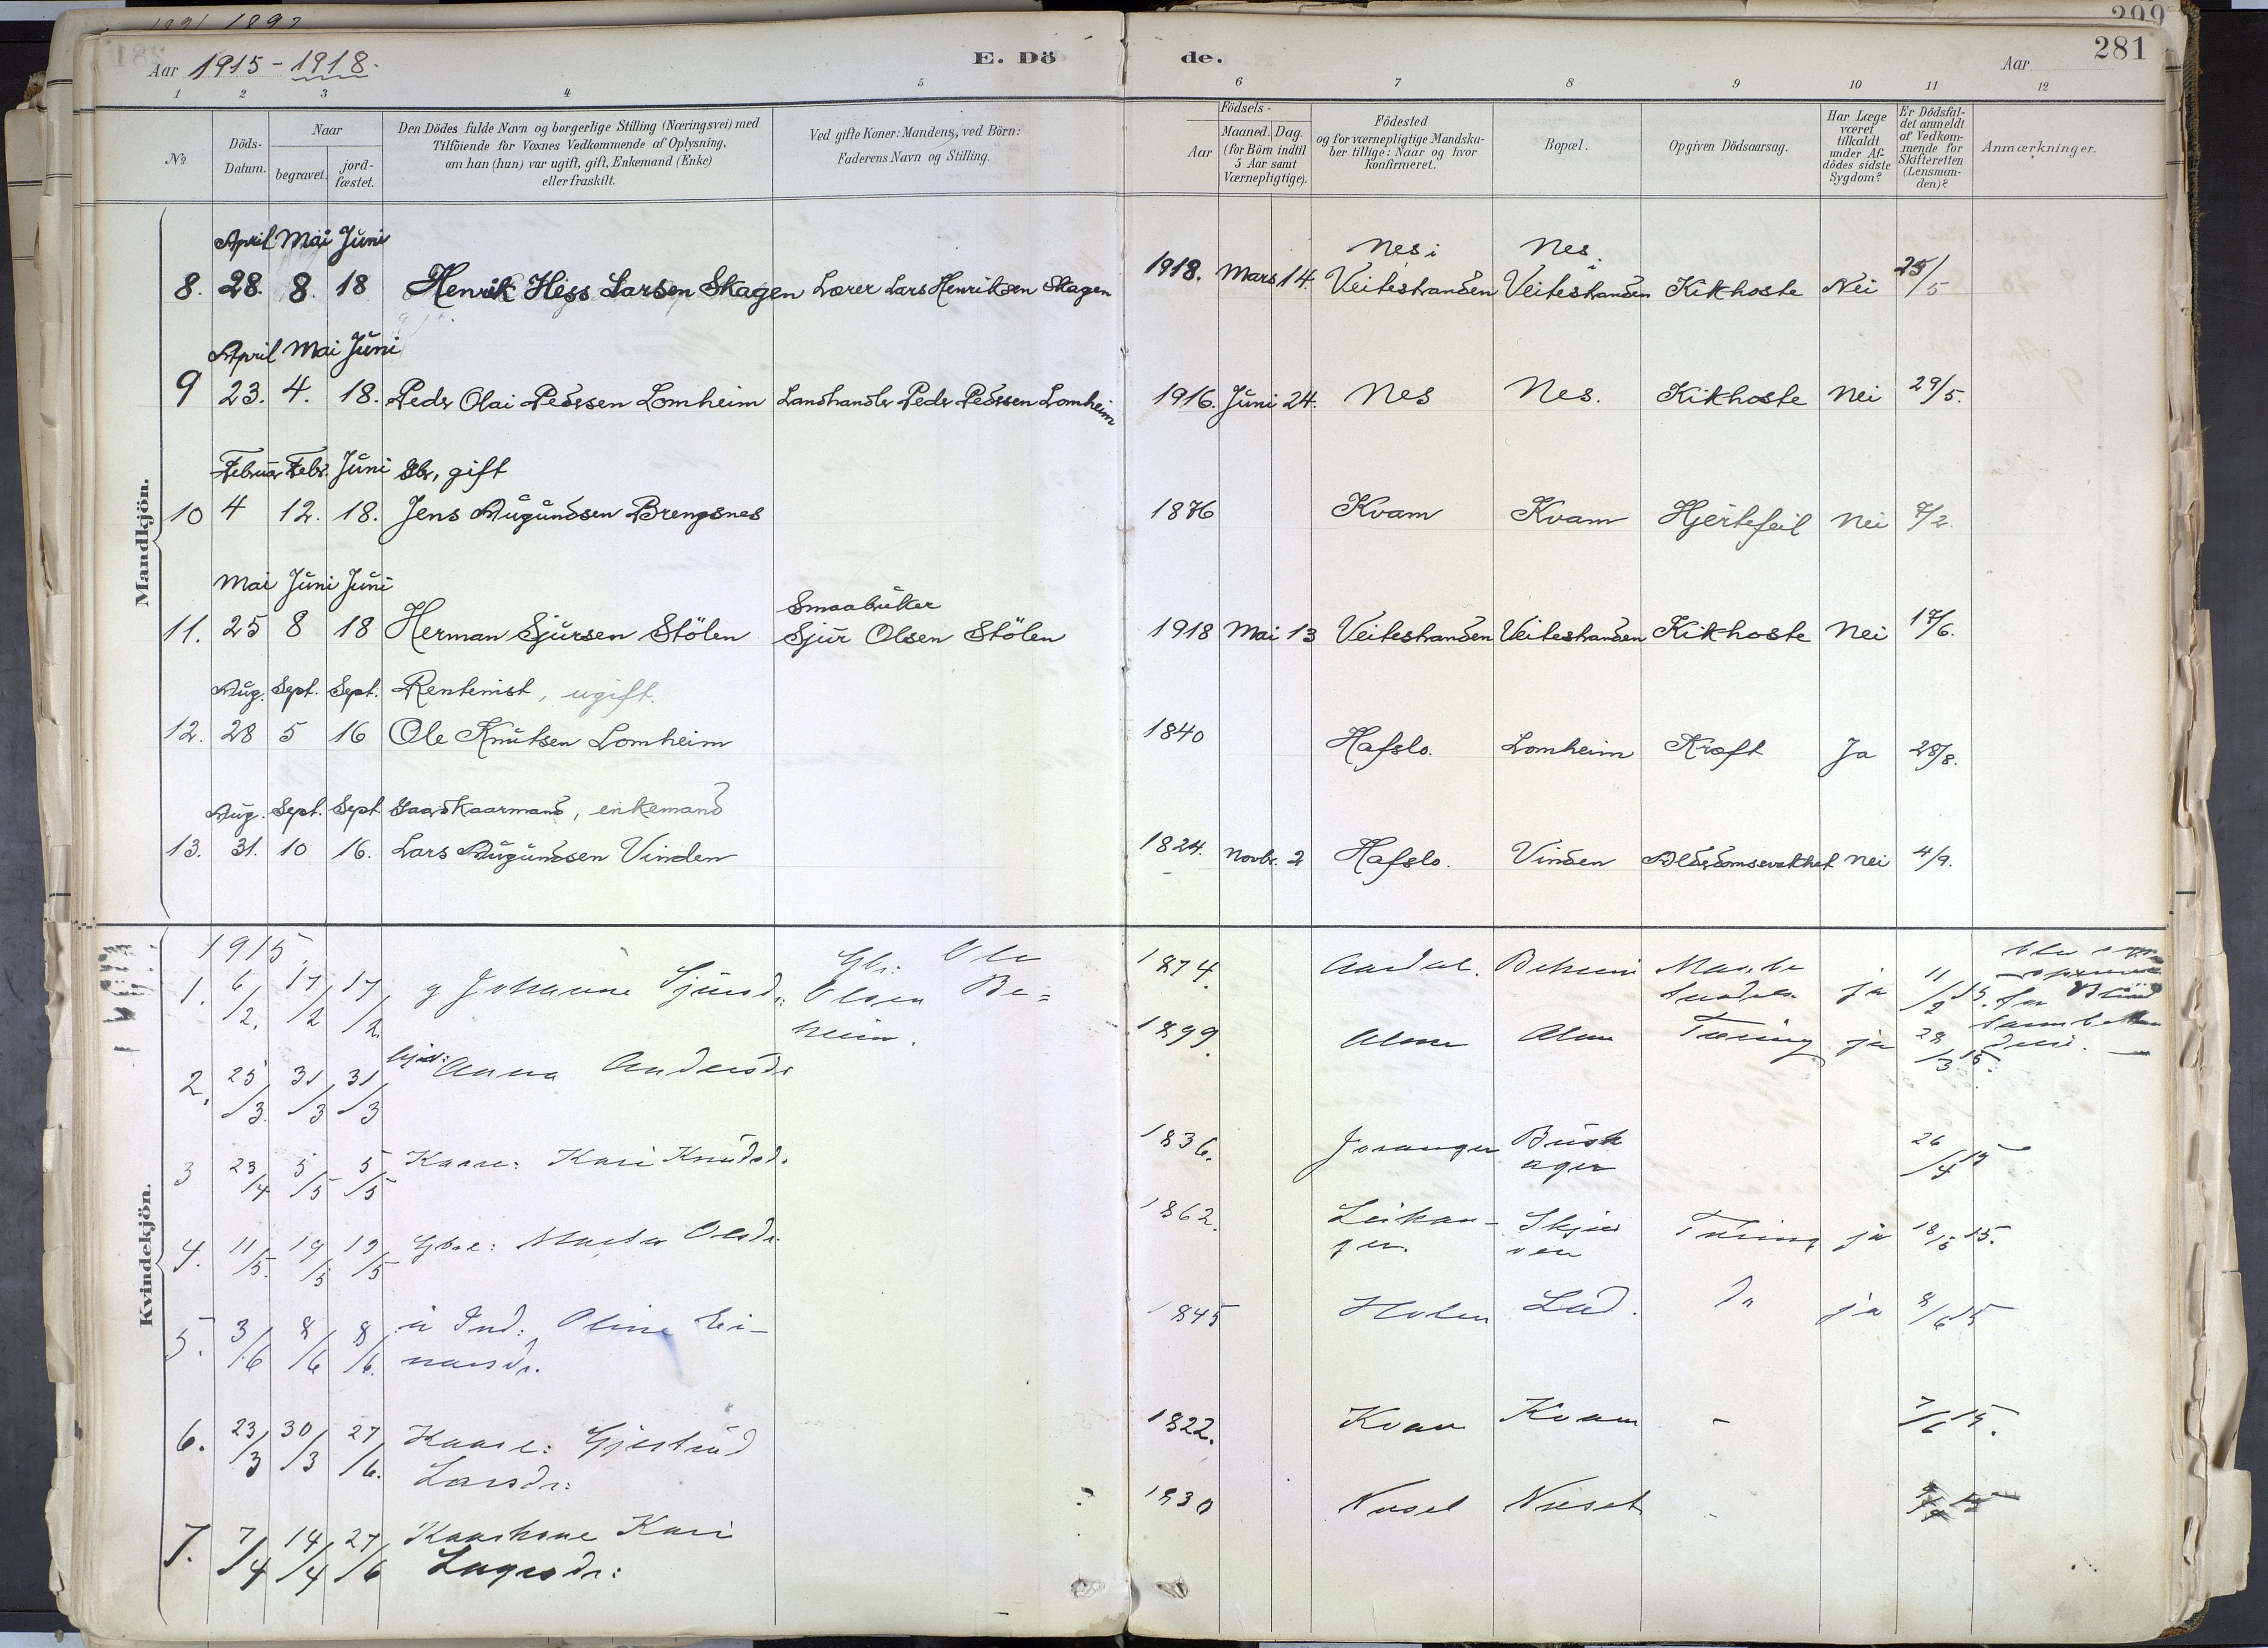 1891 1892
299
281
Aar 1915 - 1918.
E. Dö de.
Aar
1 2 3 4 5 6 7 8 9 10 11 12
No
Döds-Datum.
Naar
begravet.
jord-fæstet.
Den Dödes fulde Navn og borgerlige Stilling (Næringsvei) med
Tilföiende for Voxnes Vedkommende af Oplysning,
om han (hun) var ugift, gift, Enkemand (Enke)
eller fraskilt.
Ved gifte Koner: Mandens, ved Börn:
Faderens Navn og Stilling.
Födsels-
Aar
Maaned. Dag.
(for Börn indtil
5 Aar samt
Værnepligtige).
Födested
og for værnepligtige Mandska-
ber tillige: Naar og hvor
konfirmeret.
Bopæl.
Opgiven Dödsaarsag.
Har Læge
været
tilkaldt
under Af-
dödes sidste
Sygdom?
Er Dödsfal-
det anmeldt
af Vedkom-
mende for
Skifteretten
(Lensman-
den)?
Anmærkninger.
Mandkjön.
April Mai Juni Nes i Nes i
8. 28. 8. 18 Henrik Hess Larsen Skagen Lærer Lars Henriksen Skagen 1918. Mars 14. Veitestranden Veitestranden Kikhoste Nei 25/5
April Mai Juni
9 23. 4. 18. Peder Olai Pedersen Lomheim Landhandler Peder Pedersen Lomheim 1916. Juni 24. Nes Nes. Kikhoste Nei 29/5.
Februar Febr. Juni Gbr, gift
10 4 12. 18. Jens Augundsen Brengsnes 1876 Kvam Kvam Hjertefeil Nei 7/2.
Mai Juni Juni Smaabruker
11. 25 8 18 Herman Sjursen Stölen Sjur Olsen Stölen 1918 Mai 13 Veitestranden Veitestranden Kikhoste Nei 17/6.
Aug. Sept. Sept. Rentenist, ugift.
12. 28 5 16 Ole Knutsen Lomheim 1840 Hafslo. Lomheim Kræft Ja 28/8.
Aug. Sept. Sept Gaardkaarmand, enkemand
13. 31. 10 16. Lars Augundsen Vinden 1824. Novbr. 2 Hafslo. Vinden Alderdomssvakhet Nei 4/9.
Kvindekjön.
1915.
1. 6/2. 17/2 17/2. g Johanne Sjursdr: Gbr: Ole Olsen Beheim. 1874. Aardal. Beheim ja 11/2 15.
2. 25/3 31/3 31/3 Anna Andersdr 1899. Alme Alme Tæring ja 28/3 15.
3 23/4 5/5 5/5 Kaare: Kari Knudsd. 1836. Joranger Buskager 26/4 15
4. 11/5. 19/5 19/5 Gbre: Marta Olsdr. 1862. Leikanger. Tæring ja 18/5 15.
5. 3/6 8/6 8/6. u Ind: Oline Einarsdr. 1845 Lad. Do ja 8/6 15
6. 23/3 30/3 27/6. Kaare: Gjertrud Larsdr: 1822. Kvam Kvam - 7/6 15.
7. 7/4 14/4 27/6 Kaarkone Kari 1830 -